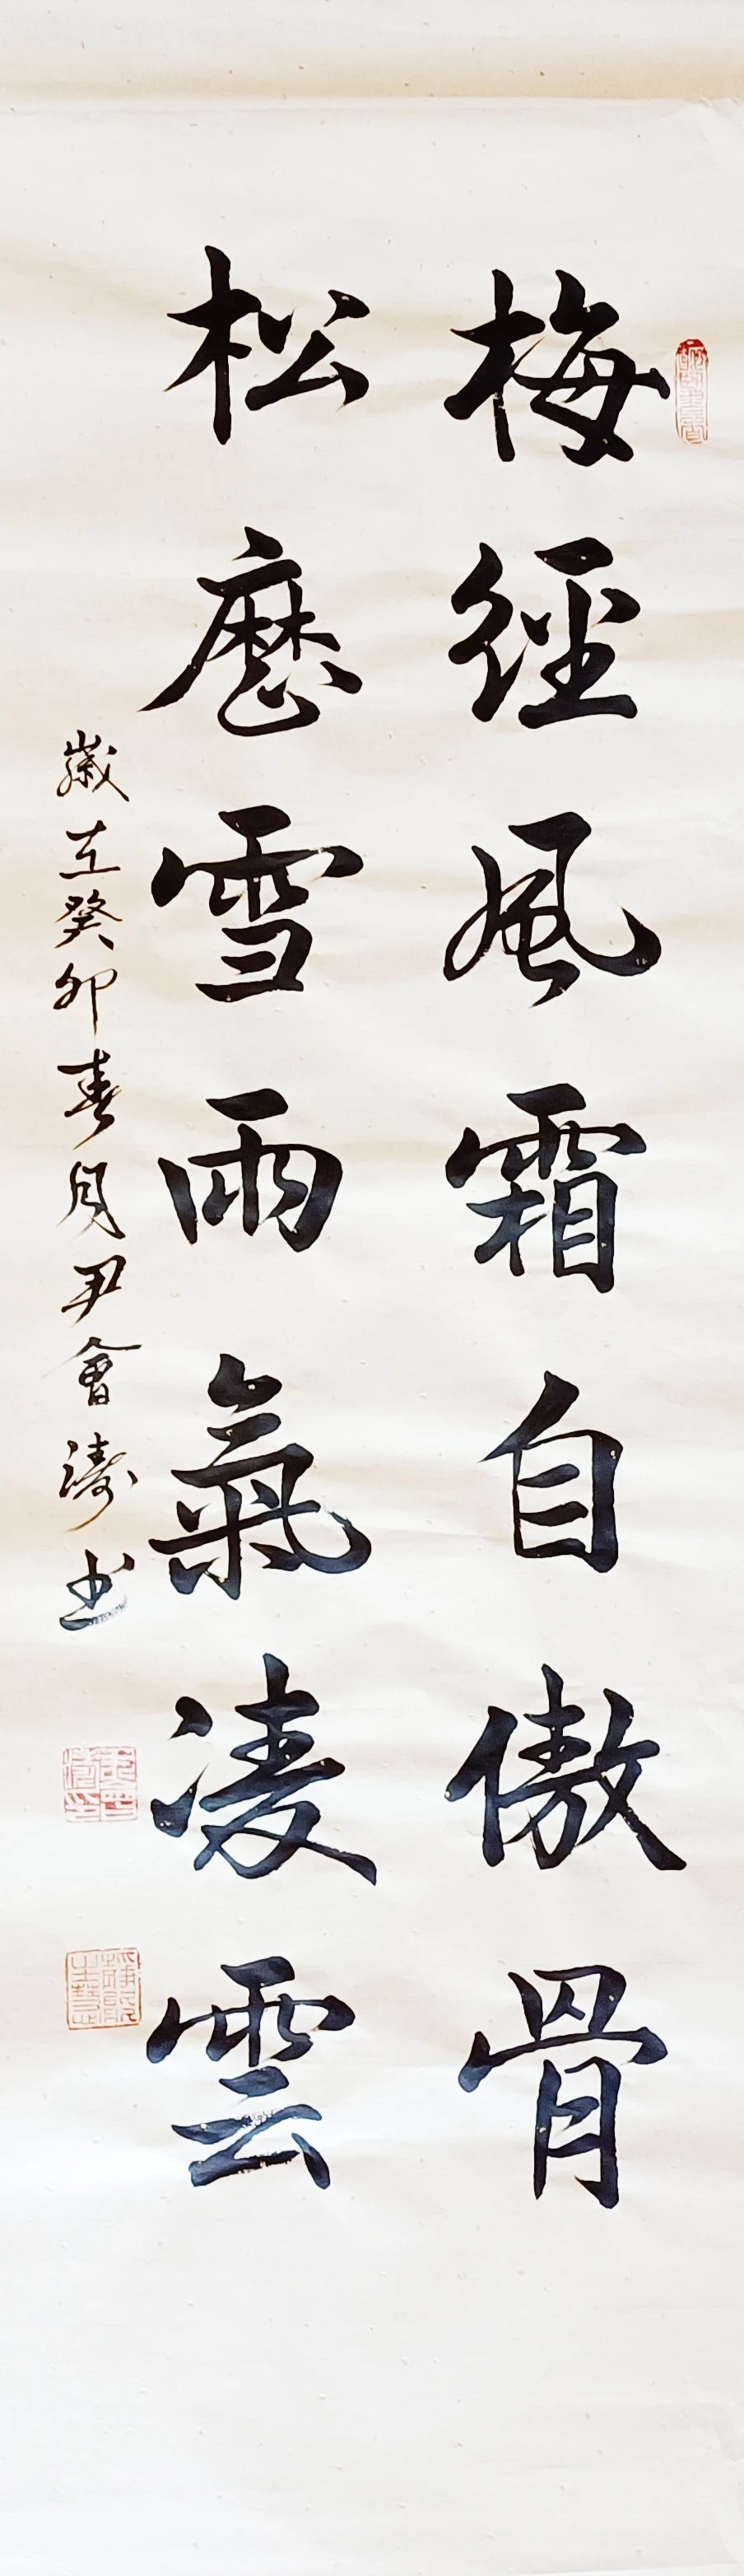 梅經風霜自傲骨
松歷雪雨氣凌雲
歲在癸卯春月尹會濤書